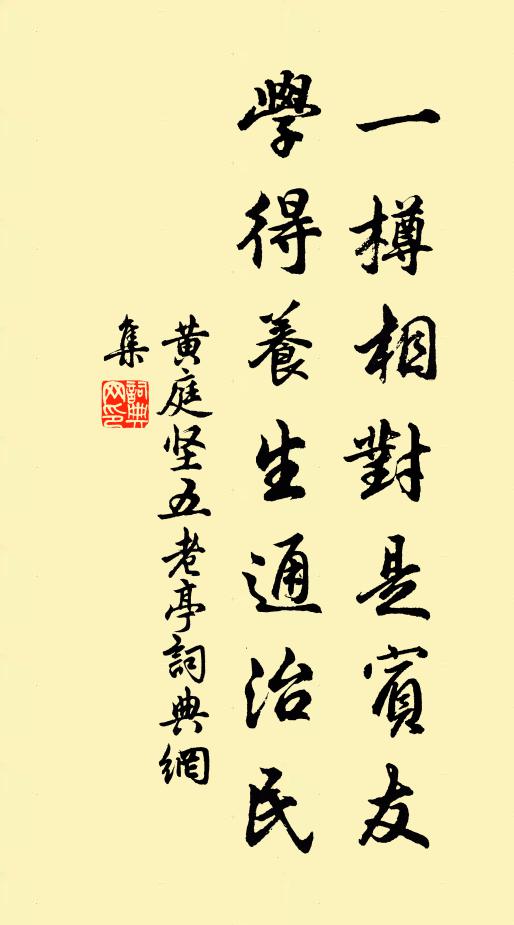 一樽相對是賓友
學得養生通治民
黄庭坚五老亭詞典網
集
詞典网印